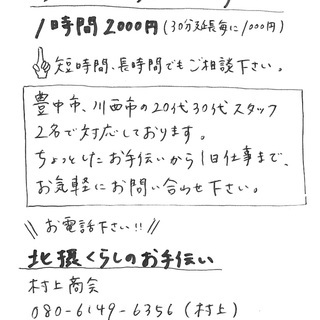 1時間2000円(30分延長毎に1000円)
短時間、長時間でもご相談下さい。
豊中市、川西市の20代30代スタッフ
2名で対応しております。
ちょっとしたお手伝いから1日仕事まで、
お気軽にお問い合わせ下さい。
\\ お電話下さい!! //
北摂くらしのお手伝い
村上商会
080-6149-6356(村上)